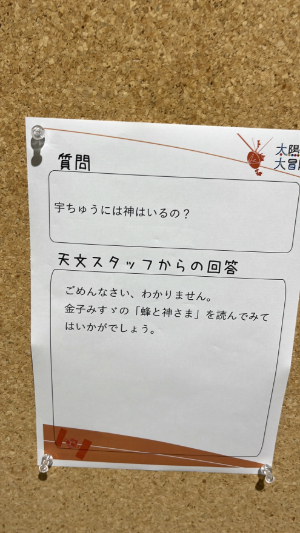 太陽
大冒
質問
宇ちゅうには神はいるの？
天文スタッフからの回答
ごめんなさい、わかりません。
金子みすゞの「蜂と神さま」を読んでみて
はいかがでしょう。